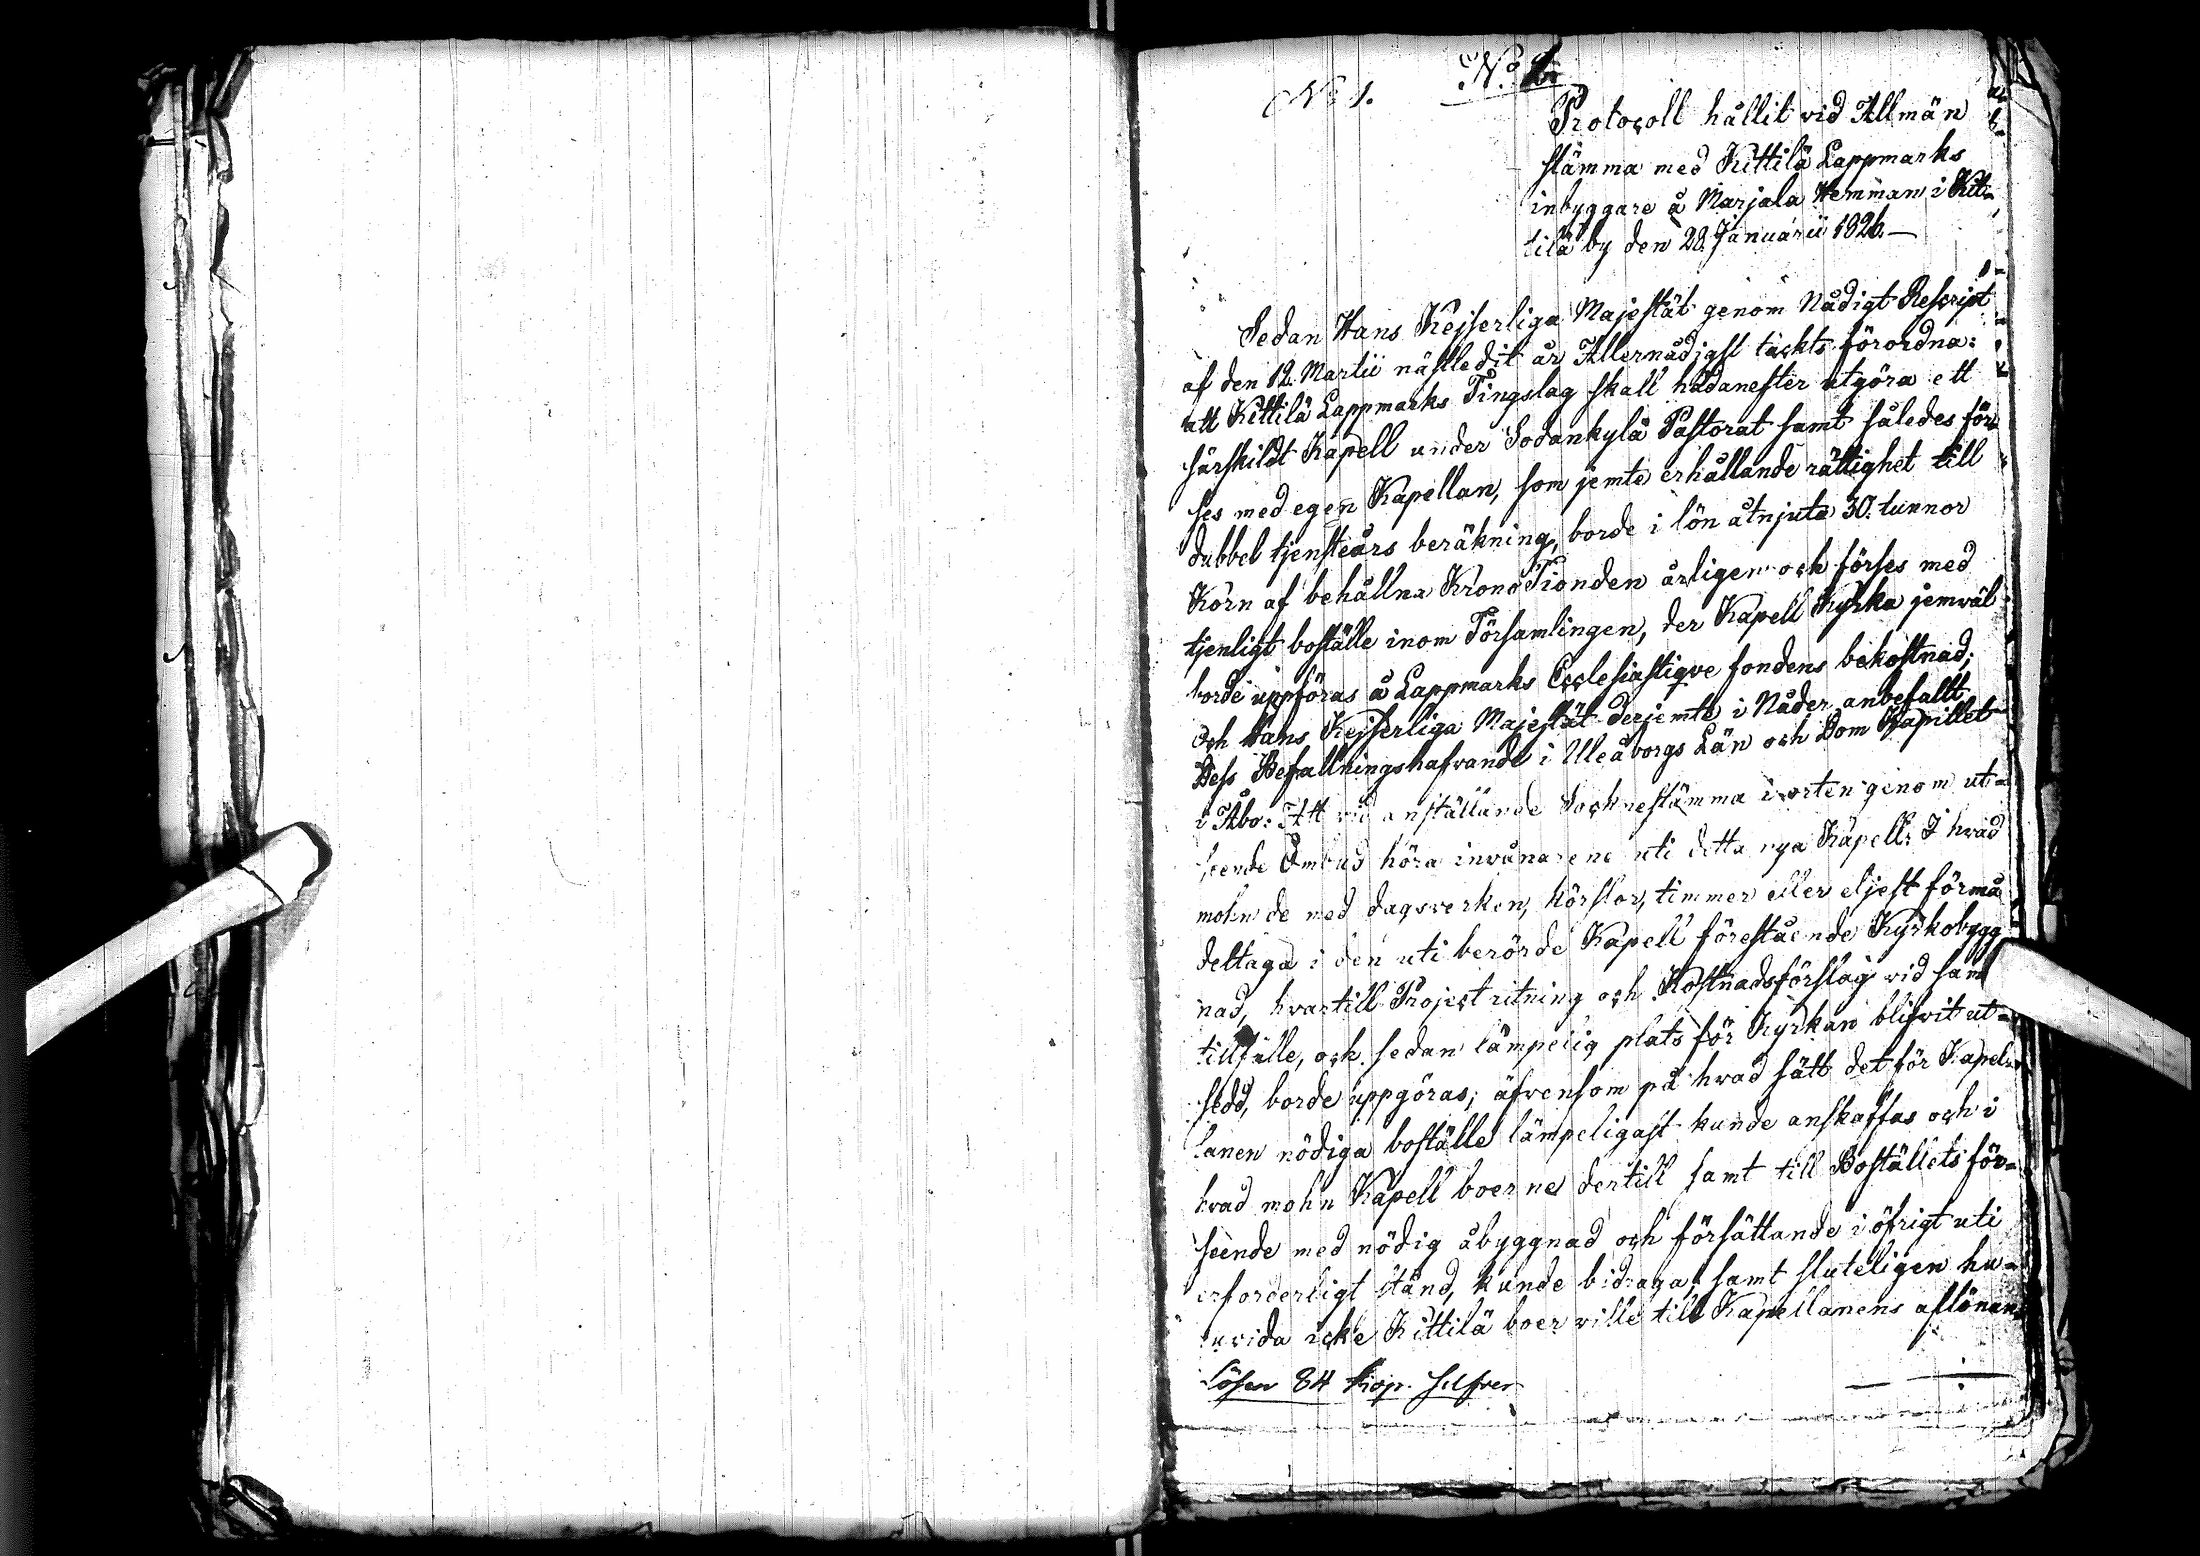 No 1.
No 1.
Protocoll hållit vid Allmän
stämma med Kittilä Lappmarks
inbyggare å Marjala Hemman i Kit-
tilä by den 28. Januarii 1826.—
Sedan Hans Kejserliga Majestät genom Nådigt Rescript
af den 12. Martii nästledit år Allernådigst täckts förordna:
att Kittilä Lappmarks Tingslag skall hädanefter utgöra ett
särskildt Kapell under Sodankylä Pastorat samt således för-
ses med egen Kapellan, som jemte erhållande rättighet till
dubbel tjensteårs beräkning, borde i lön åtnjuta 30. tunnor
Korn af behållna Krono Tionden årligen och förses med
tjenligt boställe inom Församlingen, der Kapell Kyrka jemväl
borde uppföras å Lappmarks Ecclesiastiqve fondens bekostnad;
Och Hans Kejserliga Majestät derjemte i Nåder anbefallt
Dess Befallningshafvande i Uleåborgs Län och Dom Kapillet
i Åbo: Att vid anställande Socknestämma i orten genom ut-
seende Ombud höra invånarene uti detta nya Kapell: I hvad
mohn de med dagsverken, körslor, timmer eller eljest förmå
deltaga i den uti berörde Kapell förestående Kyrkobygg
nad, hvartill Project ritning och Kostnadsförslag vid sam
tillfälle, och sedan lämpelig plats för Kyrkan blifvit ut-
sedd, borde uppgöras; äfvensom på hvad sätt det för Kapel-
lanen nödiga boställe lämpeligast kunde anskaffas och i
hvad mohn Kapell boerne dertill samt till Boställets för-
seende med nödig åbyggnad och försättande i öfrigt uti
erforderligt stånd, kunde bidraga; samt sluteligen hu-
ruvida icke Kittilä boer ville till Kapellanens aflönan
Lösen 84 Kop. Silfver